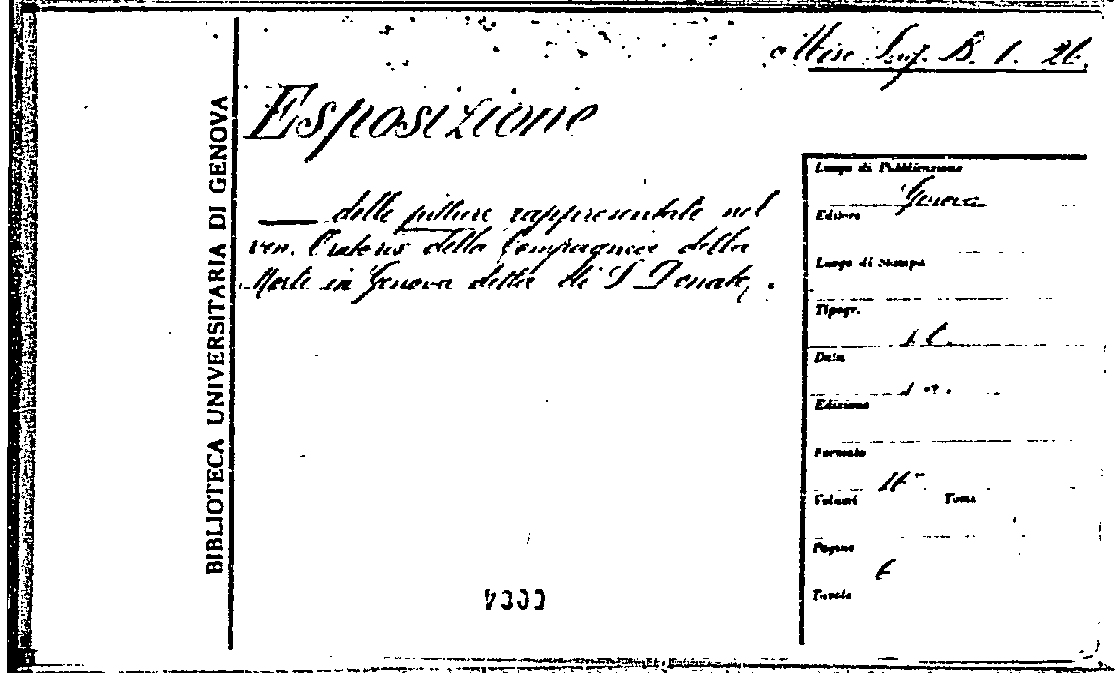 Misc Lig. B. 1. 26.
BIBLIOTECA UNIVERSITARIA DI GENOVA
Esposizione
— delle pitture rappresentate nel
ven. Oratorio della Compagnia della
Morte in Genova detta di S Donato.
Luogo di Pubblicazione
Genova
Editore
Luogo di Stampa
Tipogr.
Data
Edizione
Formato
Volumi Tomi
Pagine
6
Tavole